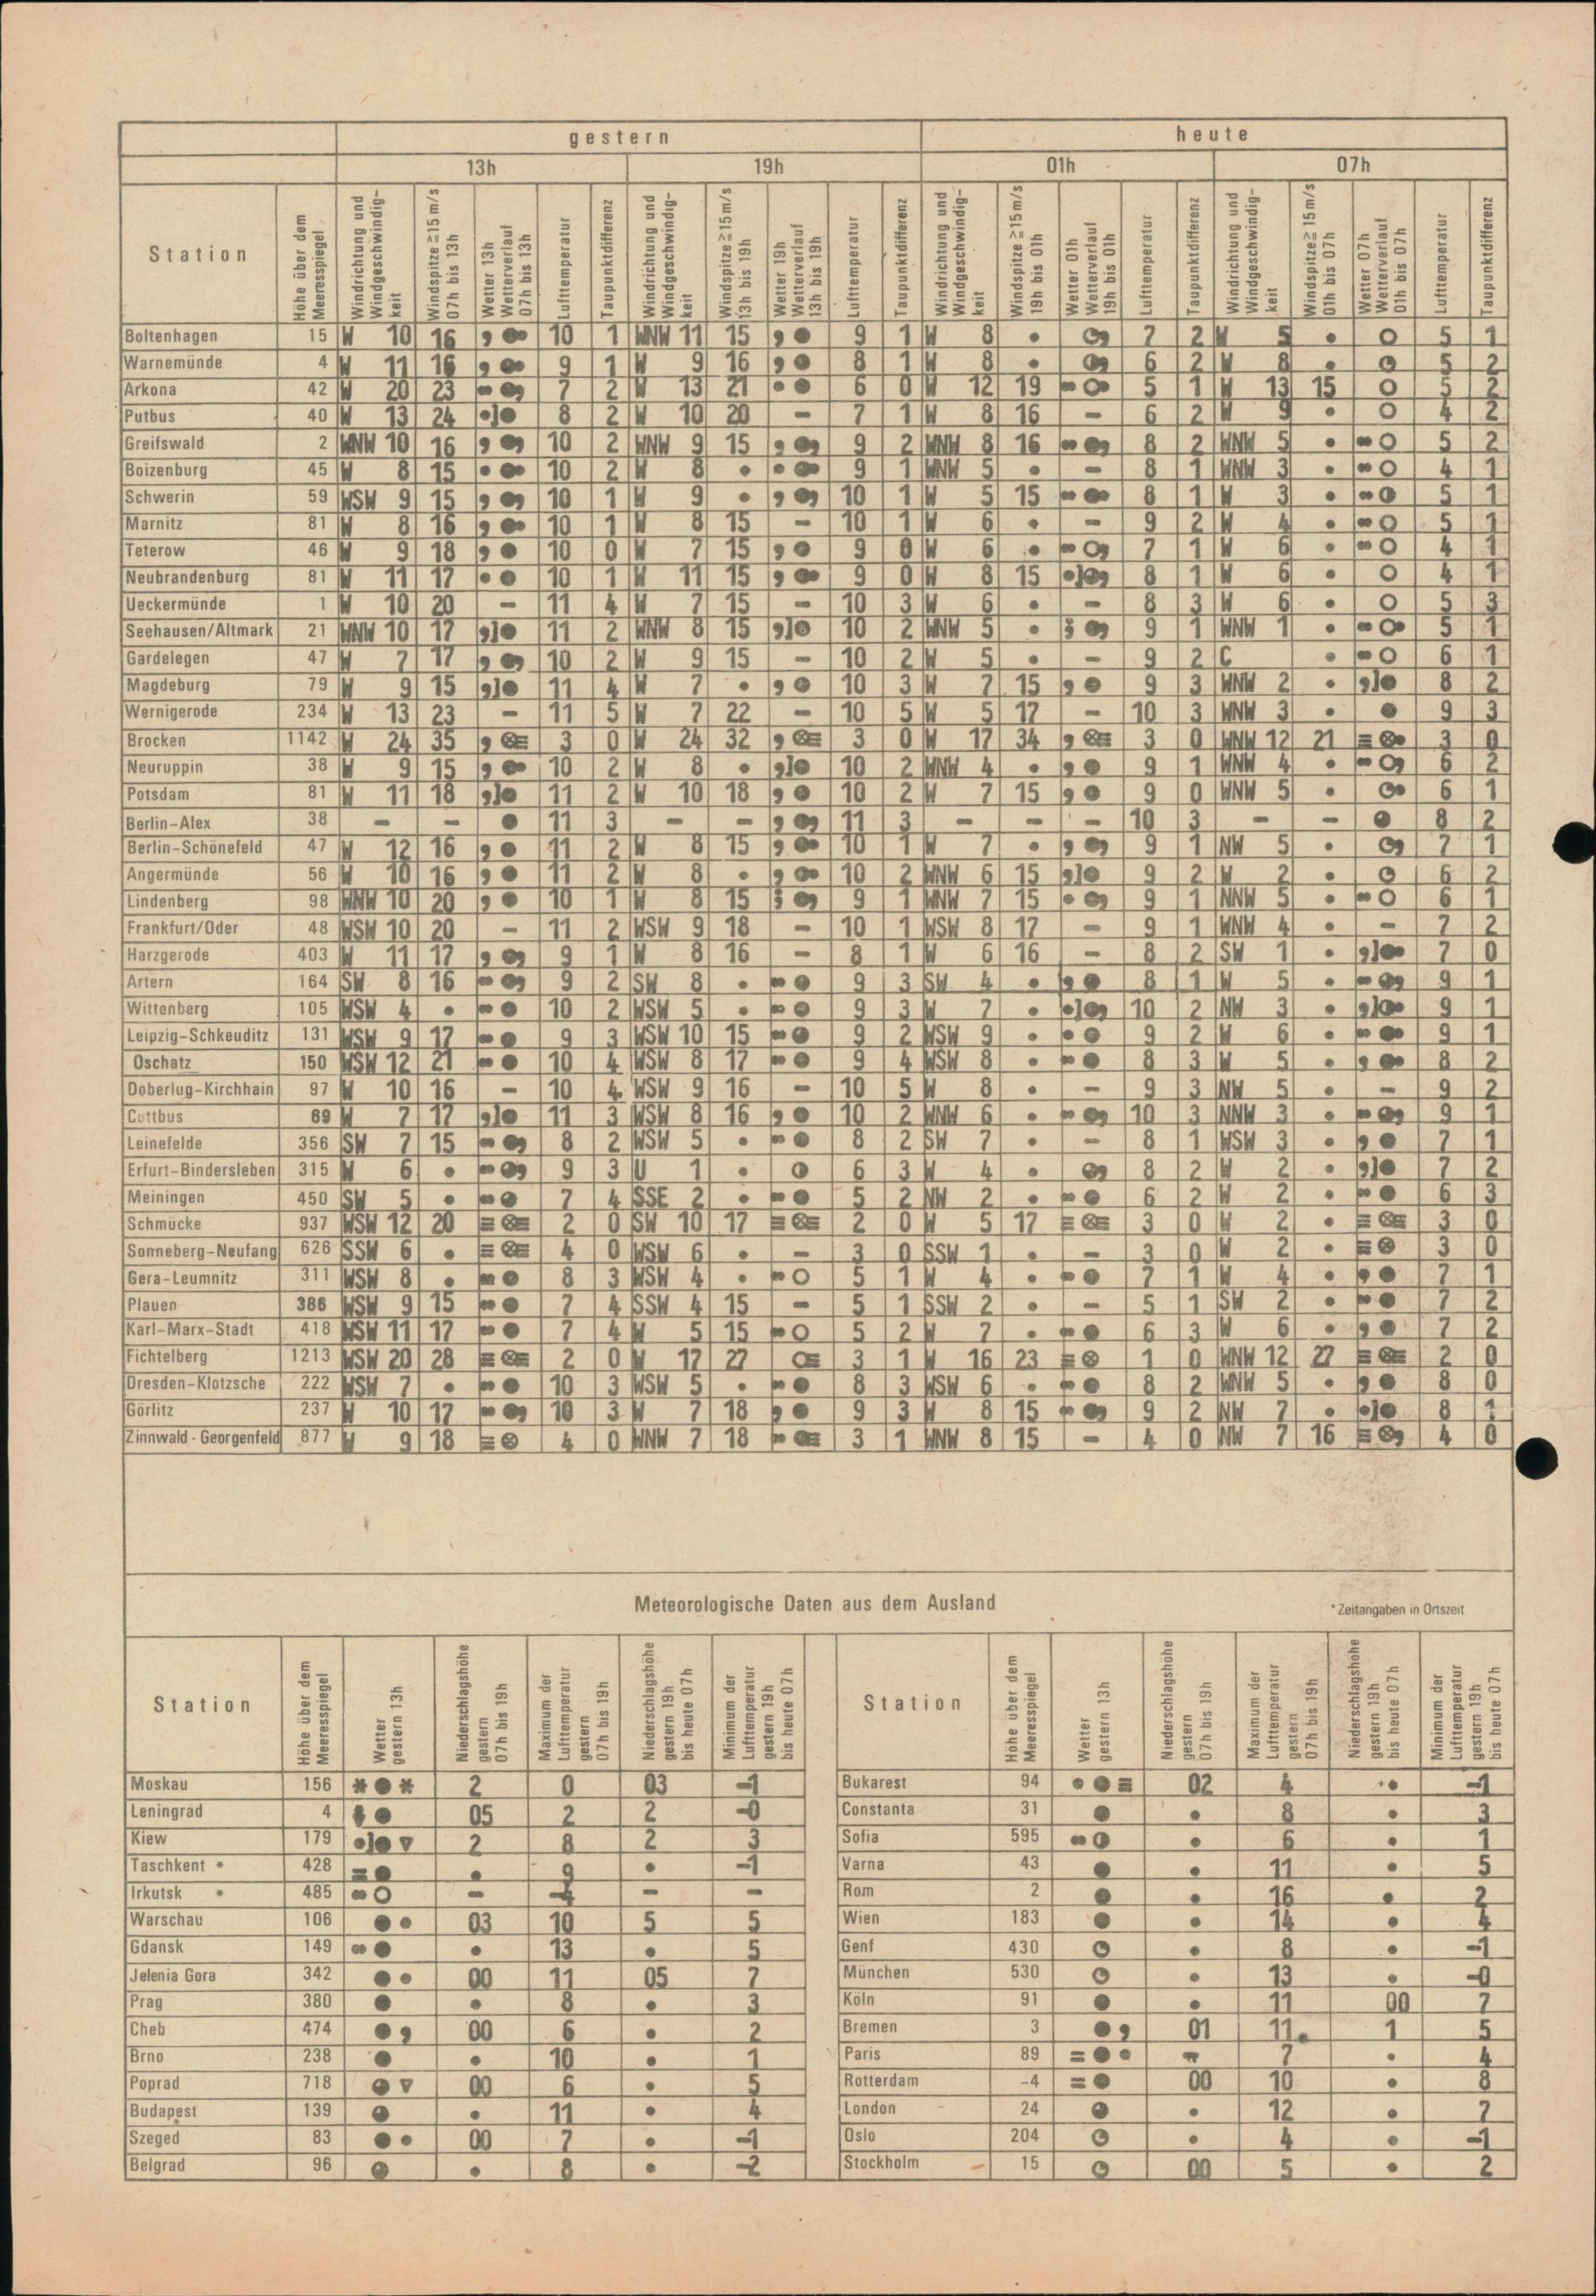 gestern heute
13h 19h 01h 07h
Station
Höhe über dem Meeresspiegel
Windrichtung und Windgeschwindig-keit
Windspitze ≧ 15 m/s 07h bis 13h
Wetter 13h Wetterverlauf 07h bis 13h
Lufttemperatur
Taupunktdifferenz
Windrichtung und Windgeschwindig-keit
Windspitze ≧ 15 m/s 13h bis 19h
Wetter 19h Wetterverlauf 13h bis 19h
Lufttemperatur
Taupunktdifferenz
Windrichtung und Windgeschwindig-keit
Windspitze ≧ 15 m/s 19h bis 01h
Wetter 01h Wetterverlauf 19h bis 01h
Lufttemperatur
Taupunktdifferenz
Windrichtung und Windgeschwindig-keit
Windspitze ≧ 15 m/s 01h bis 07h
Wetter 07h Wetterverlauf 01h bis 07h
Lufttemperatur
Taupunktdifferenz
Boltenhagen 15 W 10 16 10 1 WNW 11 15 9 1 W 8 • 7 2 W 5 • 5 1
Warnemünde 4 W 11 16 9 1 W 9 16 8 1 W 8 • 6 2 W 8 • 5 2
Arkona 42 W 20 23 7 2 W 13 21 6 0 W 12 19 5 1 W 13 15 5 2
Putbus 40 W 13 24 8 2 W 10 20 – 7 1 W 8 16 – 6 2 W 9 • 4 2
Greifswald 2 WNW 10 16 10 2 WNW 9 15 9 2 WNW 8 16 8 2 WNW 5 • 5 2
Boizenburg 45 W 8 15 10 2 W 8 • 9 1 WNW 5 • – 8 1 WNW 3 • 4 1
Schwerin 59 WSW 9 15 10 1 W 9 • 10 1 W 5 15 8 1 W 3 • 5 1
Marnitz 81 W 8 16 10 1 W 8 15 – 10 1 W 6 • – 9 2 W 4 • 5 1
Teterow 46 W 9 18 10 0 W 7 15 9 0 W 6 • 7 1 W 6 • 4 1
Neubrandenburg 81 W 11 17 10 1 W 11 15 9 0 W 8 15 8 1 W 6 • 4 1
Ueckermünde 1 W 10 20 – 11 4 W 7 15 – 10 3 W 6 • – 8 3 W 6 • 5 3
Seehausen/Altmark 21 WNW 10 17 11 2 WNW 8 15 10 2 WNW 5 • 9 1 WNW 1 • 5 1
Gardelegen 47 W 7 17 10 2 W 9 15 – 10 2 W 5 • – 9 2 C • 6 1
Magdeburg 79 W 9 15 11 4 W 7 • 10 3 W 7 15 9 3 WNW 2 • 8 2
Wernigerode 234 W 13 23 – 11 5 W 7 22 – 10 5 W 5 17 – 10 3 WNW 3 • 9 3
Brocken 1142 W 24 35 3 0 W 24 32 3 0 W 17 34 3 0 WNW 12 21 3 0
Neuruppin 38 W 9 15 10 2 W 8 • 10 2 WNW 4 • 9 1 WNW 4 • 6 2
Potsdam 81 W 11 18 11 2 W 10 18 10 2 W 7 15 9 0 WNW 5 • 6 1
Berlin-Alex 38 – – 11 3 – – 11 3 – – – 10 3 – – 8 2
Berlin-Schönefeld 47 W 12 16 11 2 W 8 15 10 1 W 7 • 9 1 NW 5 • 7 1
Angermünde 56 W 10 16 11 2 W 8 • 10 2 WNW 6 15 9 2 W 2 • 6 2
Lindenberg 98 WNW 10 20 10 1 W 8 15 9 1 WNW 7 15 9 1 NNW 5 • 6 1
Frankfurt/Oder 48 WSW 10 20 – 11 2 WSW 9 18 – 10 1 WSW 8 17 – 9 1 WNW 4 • – 7 2
Harzgerode 403 W 11 17 9 1 W 8 16 – 8 1 W 6 16 – 8 2 SW 1 • 7 0
Artern 164 SW 8 16 9 2 SW 8 • 9 3 SW 4 • 8 1 W 5 • 9 1
Wittenberg 105 WSW 4 • 10 2 WSW 5 • 9 3 W 7 • 10 2 NW 3 • 9 1
Leipzig-Schkeuditz 131 WSW 9 17 9 3 WSW 10 15 9 2 WSW 9 • 9 2 W 6 • 9 1
Oschatz 150 WSW 12 21 10 4 WSW 8 17 9 4 WSW 8 • 8 3 W 5 • 8 2
Doberlug-Kirchhain 97 W 10 16 – 10 4 WSW 9 16 – 10 5 W 8 • – 9 3 NW 5 • – 9 2
Cottbus 69 W 7 17 11 3 WSW 8 16 10 2 WNW 6 • 10 3 NNW 3 • 9 1
Leinefelde 356 SW 7 15 8 2 WSW 5 • 8 2 SW 7 • – 8 1 WSW 3 • 7 1
Erfurt-Bindersleben 315 W 6 • 9 3 U 1 • 6 3 W 4 • 8 2 W 2 • 7 2
Meiningen 450 SW 5 • 7 4 SSE 2 • 5 2 NW 2 • 6 2 W 2 • 6 3
Schmücke 937 WSW 12 20 2 0 SW 10 17 2 0 W 5 17 3 0 W 2 • 3 0
Sonneberg-Neufang 626 SSW 6 • 4 0 WSW 6 • – 3 0 SSW 1 • – 3 0 W 2 • 3 0
Gera-Leumnitz 311 WSW 8 • 8 3 WSW 4 • 5 1 W 4 • 7 1 W 4 • 7 1
Plauen 386 WSW 9 15 7 4 SSW 4 15 – 5 1 SSW 2 • – 5 1 SW 2 • 7 2
Karl-Marx-Stadt 418 WSW 11 17 7 4 W 5 15 5 2 W 7 • 6 3 W 6 • 7 2
Fichtelberg 1213 WSW 20 28 2 0 W 17 27 3 1 W 16 23 1 0 WNW 12 27 2 0
Dresden-Klotzsche 222 WSW 7 • 10 3 WSW 5 • 8 3 WSW 6 • 8 2 WNW 5 • 8 0
Görlitz 237 W 10 17 10 3 W 7 18 9 3 W 8 15 9 2 NW 7 • 8 1
Zinnwald-Georgenfeld 877 W 9 18 4 0 WNW 7 18 3 1 WNW 8 15 – 4 0 NW 7 16 4 0
Meteorologische Daten aus dem Ausland
*Zeitangaben in Ortszeit
Station
Höhe über dem Meeresspiegel
Wetter gestern 13h
Niederschlagshöhe gestern 07h bis 19h
Maximum der Lufttemperatur gestern 07h bis 19h
Niederschlagshöhe gestern 19h bis heute 07h
Minimum der Lufttemperatur gestern 19h bis heute 07h
Moskau 156 2 0 03 -1
Leningrad 4 05 2 2 -0
Kiew 179 2 8 2 3
Taschkent * 428 • 9 • -1
Irkutsk * 485 – -4 – –
Warschau 106 03 10 5 5
Gdansk 149 • 13 • 5
Jelenia Gora 342 00 11 05 7
Prag 380 • 8 • 3
Cheb 474 00 6 • 2
Brno 238 • 10 • 1
Poprad 718 00 6 • 5
Budapest 139 • 11 • 4
Szeged 83 00 7 • -1
Belgrad 96 • 8 • -2
Station
Höhe über dem Meeresspiegel
Wetter gestern 13h
Niederschlagshöhe gestern 07h bis 19h
Maximum der Lufttemperatur gestern 07h bis 19h
Niederschlagshöhe gestern 19h bis heute 07h
Minimum der Lufttemperatur gestern 19h bis heute 07h
Bukarest 94 02 4 • -1
Constanta 31 • 8 • 3
Sofia 595 • 6 • 1
Varna 43 • 11 • 5
Rom 2 • 16 • 2
Wien 183 • 14 • 4
Genf 430 • 8 • -1
München 530 • 13 • -0
Köln 91 • 11 00 7
Bremen 3 01 11 1 5
Paris 89 7 • 4
Rotterdam -4 00 10 • 8
London 24 • 12 • 7
Oslo 204 • 4 • -1
Stockholm 15 00 5 • 2